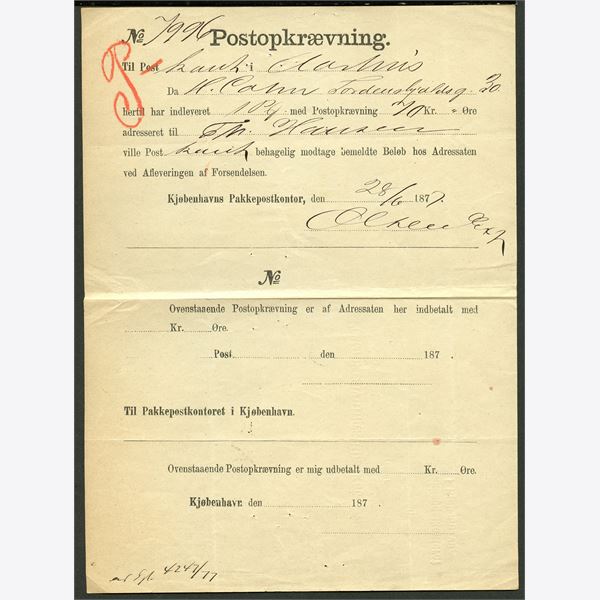 № 7996 Postopkrævning.
P
Til Post kont. i Aarhus
Da H. Cohn Tordenskjoldsg. 30
hertil har indleveret 1 Pk med Postopkrævning 70 Kr. " Øre
adresseret til Th. Hansen
ville Post kont. behagelig modtage bemeldte Beløb hos Adressaten
ved Afleveringen af Forsendelsen.
Kjøbenhavns Pakkepostkontor, den 28/6 1877.
Olsen
№
Ovenstaaende Postopkrævning er af Adressaten her indbetalt med
Kr. Øre.
Post den 187 .
Til Pakkepostkontoret i Kjøbenhavn.
Ovenstaaende Postopkrævning er mig udbetalt med Kr. Øre.
Kjøbenhavn den 187 .
4242/77